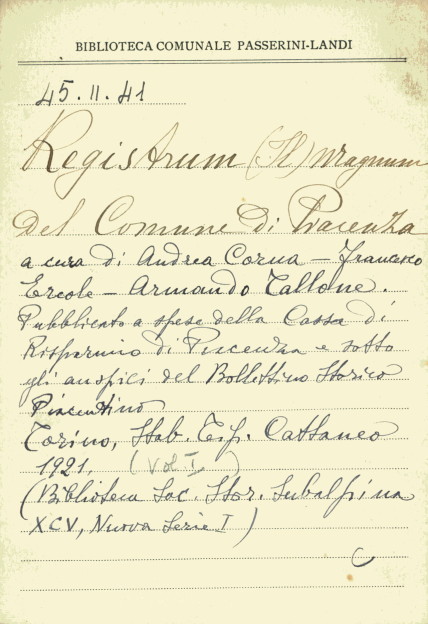 BIBLIOTECA COMUNALE PASSERINI-LANDI
45.II.41
Registrum (Il) Magnum
del Comune di Piacenza
a cura di Andrea Corna - Francesco
Ercole - Armando Tallone.
Pubblicato a spese della Cassa di
Risparmio di Piacenza e sotto
gli auspici del Bollettino Storico
Piacentino
Torino, Stab. Tip. Cattaneo
1921. (Vol I)
(Biblioteca Soc. Stor. Subalpina
XCV, Nuova Serie I)
C